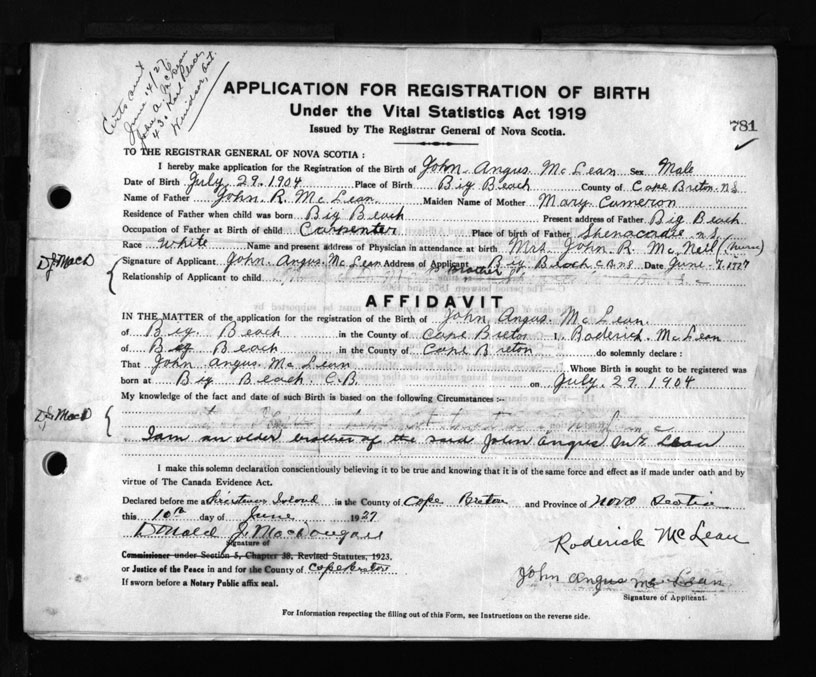 Certs sent
June 14/27
John A. McLean
43
Windsor, Ont.
APPLICATION FOR REGISTRATION OF BIRTH
Under the Vital Statistics Act 1919
Issued by The Registrar General of Nova Scotia.
781
TO THE REGISTRAR GENERAL OF NOVA SCOTIA :
I hereby make application for the Registration of the Birth of John Angus McLean Sex Male
Date of Birth July 29. 1904 Place of Birth Big Beach County of Cape Breton N.S.
Name of Father John R. McLean Maiden Name of Mother Mary Cameron
Residence of Father when child was born Big Beach Present address of Father Big Beach
Occupation of Father at Birth of child Carpenter Place of Birth of Father N.S.
Race White Name and present address of Physician in attendance at birth Mrs. John R. McNeil (nurse)
D.J. MacD
Signature of Applicant John Angus McLean Address of Applicant Big Beach C.B. N.S Date June 7. 1927
Relationship of Applicant to child
AFFIDAVIT
IN THE MATTER of the application for the registration of the Birth of John Angus McLean
of Big Beach in the County of Cape Breton I, Roderick McLean
of Big Beach in the County of Cape Breton do solemnly declare :
That John Angus McLean Whose Birth is sought to be registered was
born at Big Beach C.B. on July 29 1904
My knowledge of the fact and date of such Birth is based on the following Circumstances :-
D.J. MacD
I am an older brother of the said John Angus McLean
I make this solemn declaration conscientiously believing it to be true and knowing that it is of the same force and effect as if made under oath and by
virtue of The Canada Evidence Act.
Declared before me at Christmas Island in the County of Cape Breton and Province of Nova Scotia
this 10th day of June 1927
Donald J. MacDougall
Signature of
Commissioner under Section 5, Chapter 38, Revised Statutes, 1923.
or Justice of the Peace in and for the County of Cape Breton
If sworn before a Notary Public affix seal.
Roderick McLean
John Angus McLean
Signature of Applicant.
For Information respecting the filling out of this Form, see Instructions on the reverse side.